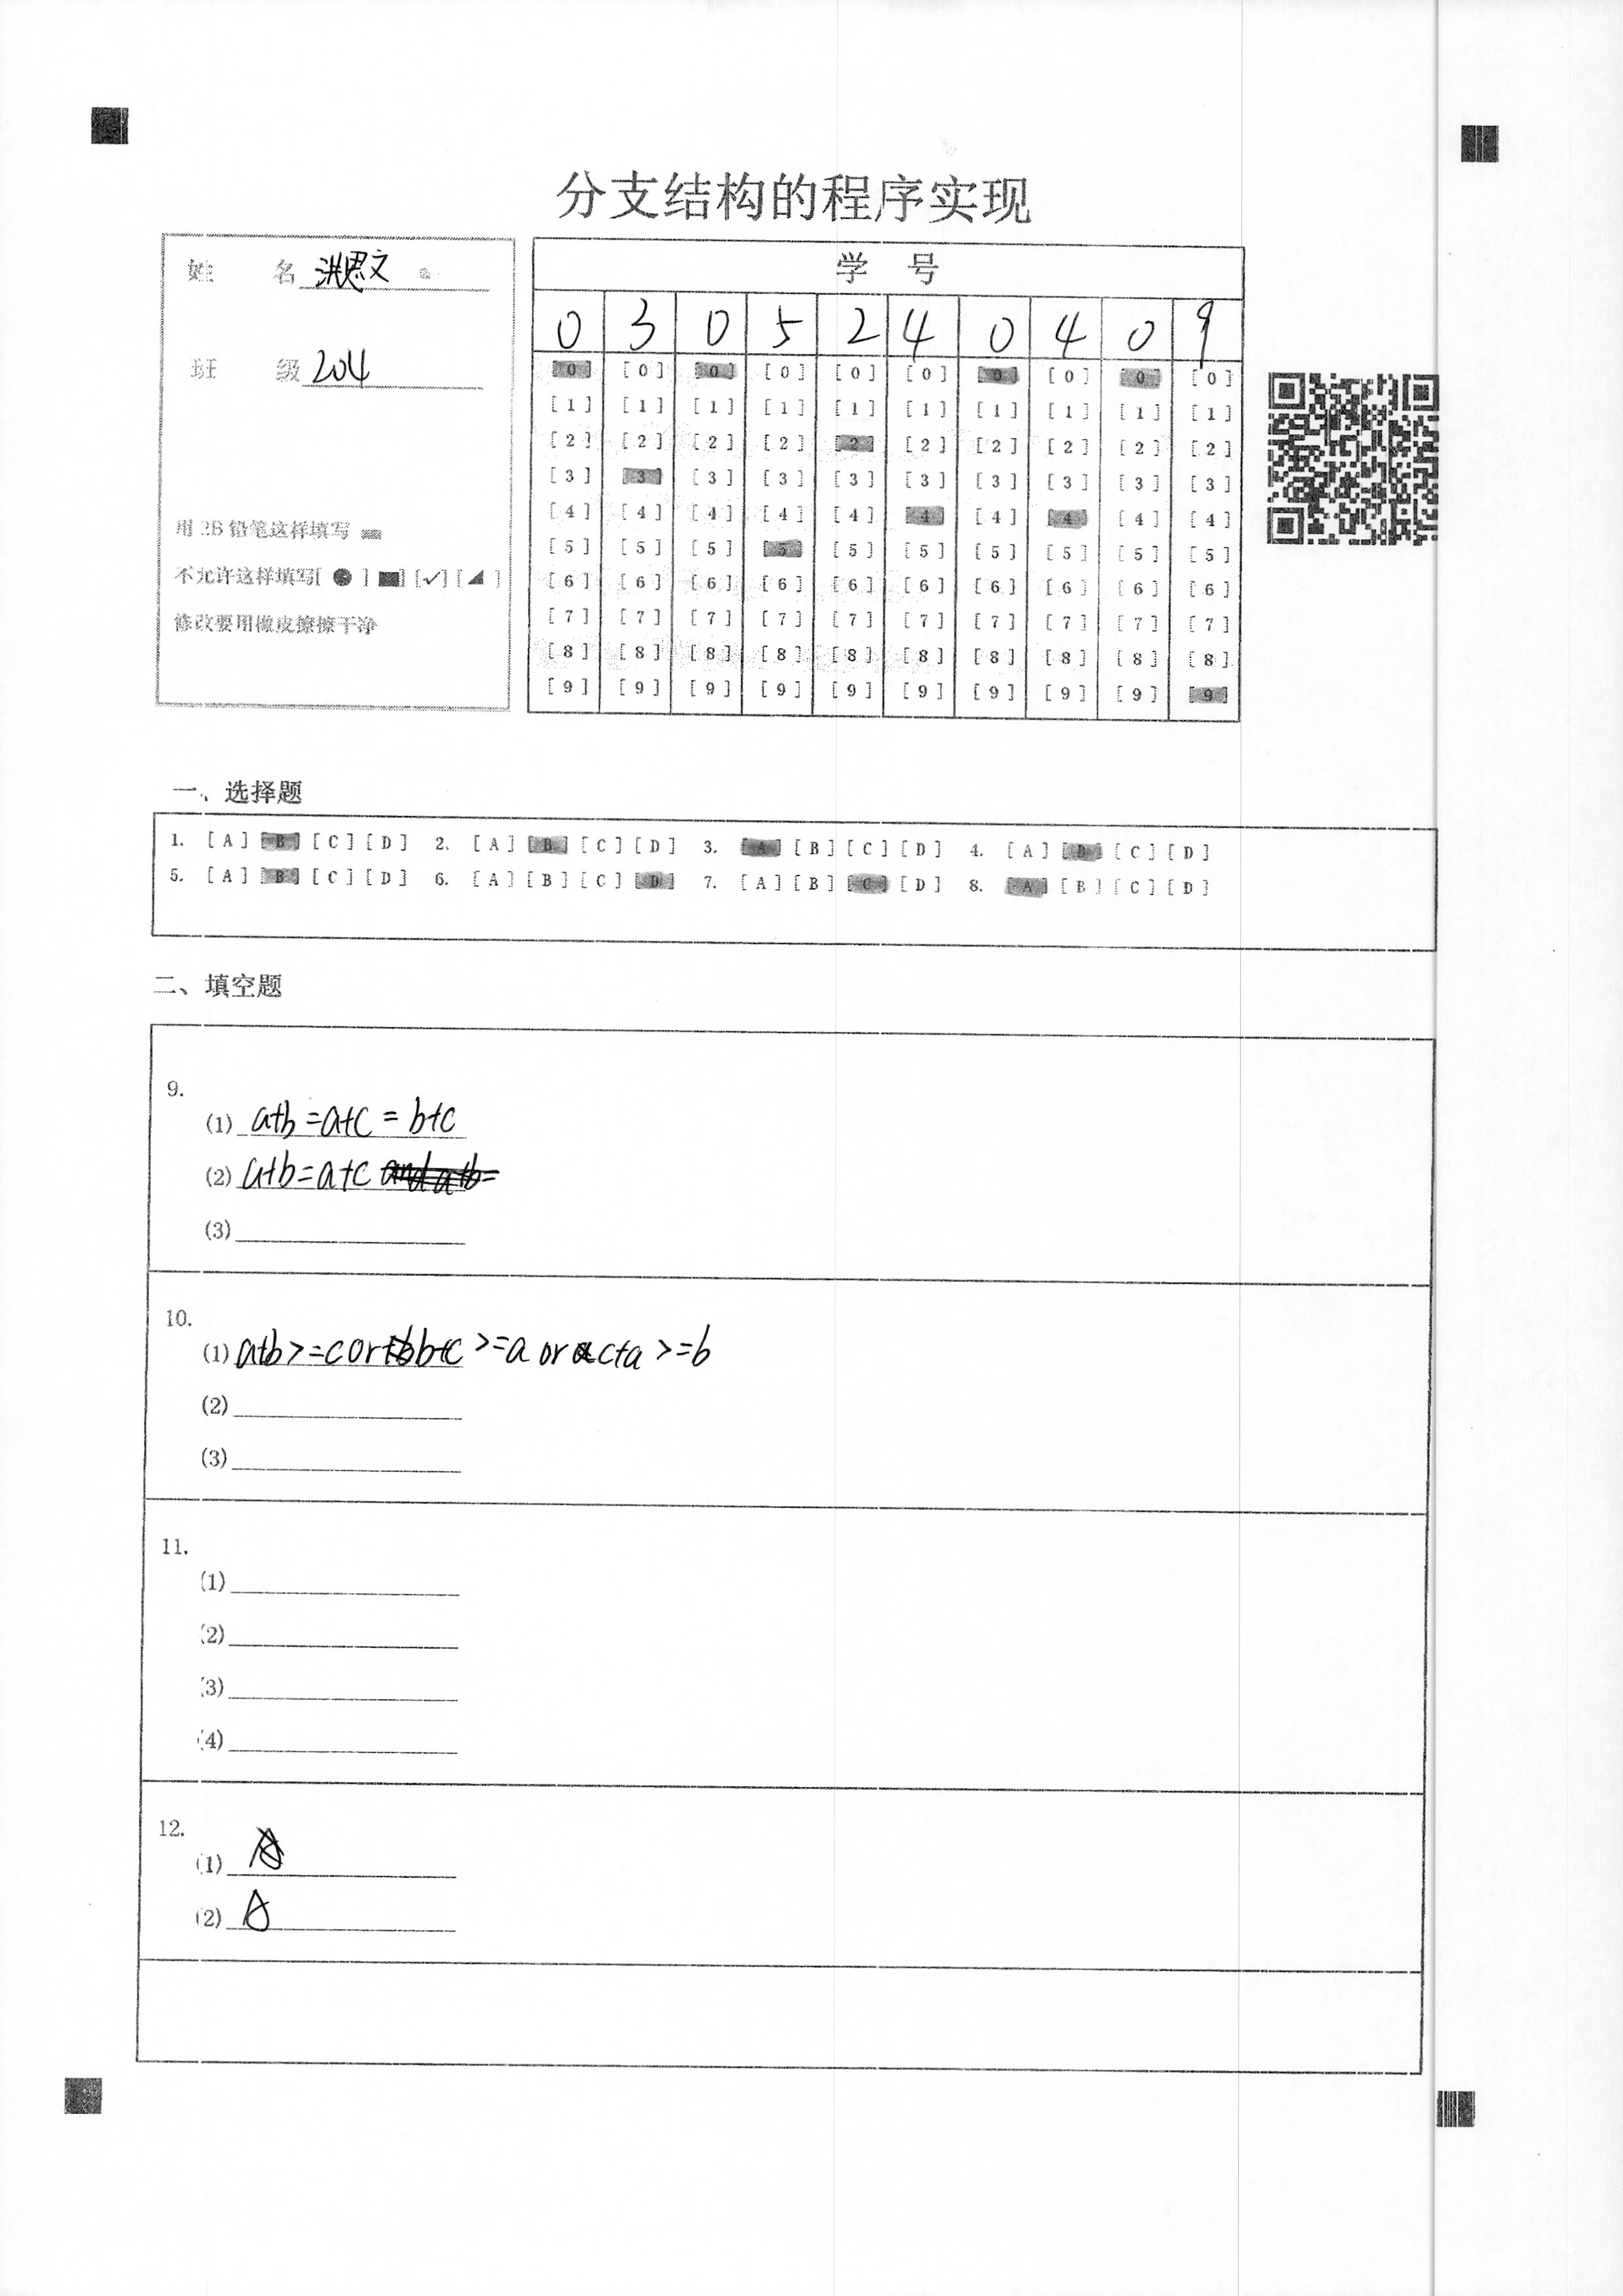 分支结构的程序实现
姓 名 洪思文
班 级 204
用2B铅笔这样填写
不允许这样填写[ ● ] [■] [✓] [◢ ]
修改要用橡皮擦擦干净
学 号
0 3 0 5 2 4 0 4 0 9
[0] [0] [0] [0] [0] [0] [0] [0] [0] [0]
[1] [1] [1] [1] [1] [1] [1] [1] [1] [1]
[2] [2] [2] [2] [2] [2] [2] [2] [2] [2]
[3] [3] [3] [3] [3] [3] [3] [3] [3] [3]
[4] [4] [4] [4] [4] [4] [4] [4] [4] [4]
[5] [5] [5] [5] [5] [5] [5] [5] [5] [5]
[6] [6] [6] [6] [6] [6] [6] [6] [6] [6]
[7] [7] [7] [7] [7] [7] [7] [7] [7] [7]
[8] [8] [8] [8] [8] [8] [8] [8] [8] [8]
[9] [9] [9] [9] [9] [9] [9] [9] [9] [9]
一、选择题
1. [A] [B] [C] [D] 2. [A] [B] [C] [D] 3. [A] [B] [C] [D] 4. [A] [B] [C] [D]
5. [A] [B] [C] [D] 6. [A] [B] [C] [D] 7. [A] [B] [C] [D] 8. [A] [B] [C] [D]
二、填空题
9.
(1) a+b=a+c=b+c
(2) a+b=a+c
(3)
10.
(1) a+b>=c or b+c>=a or c+a>=b
(2)
(3)
11.
(1)
(2)
(3)
(4)
12.
(1)
(2) A